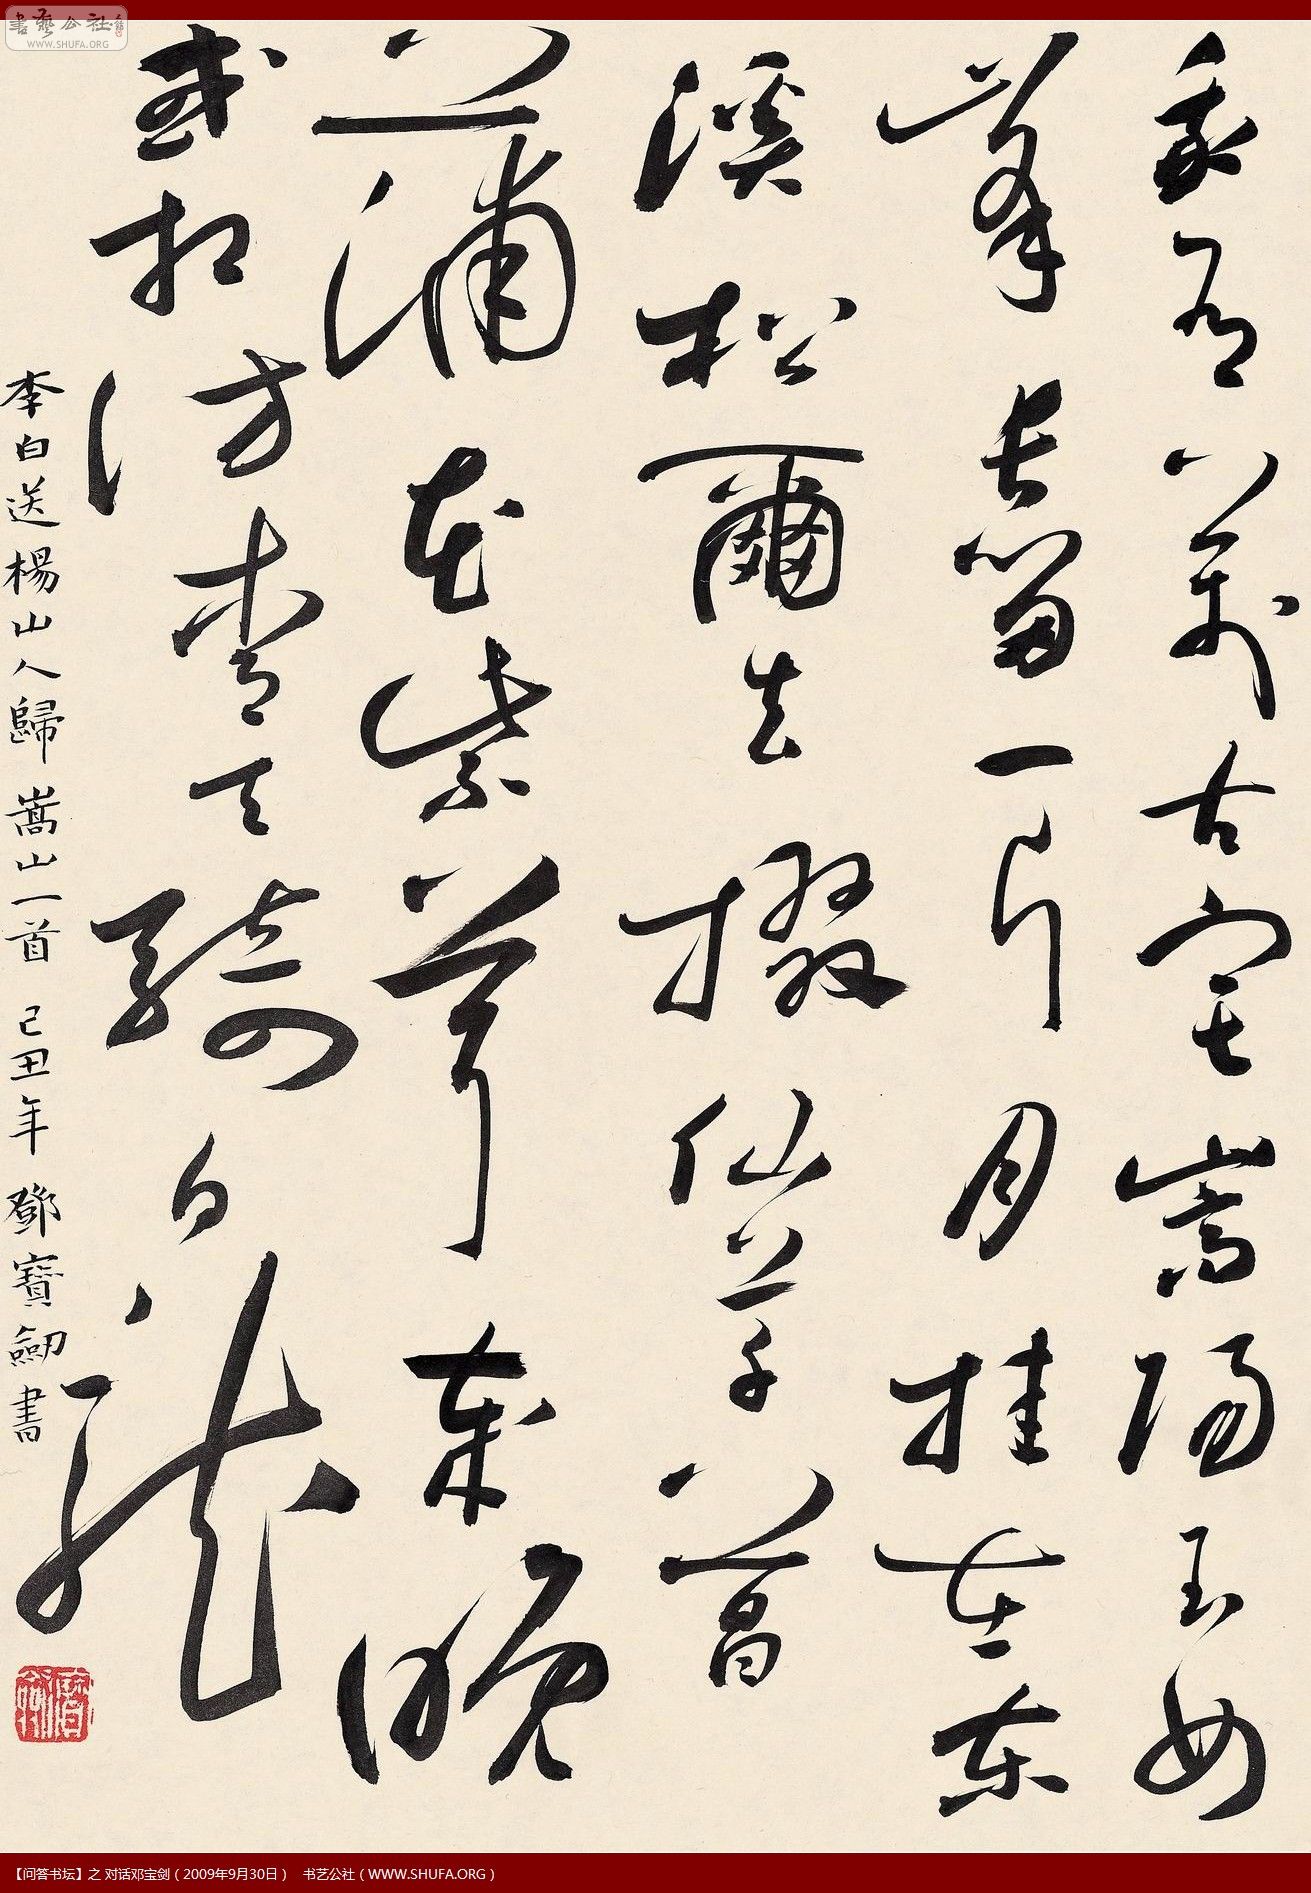 書藝公社
WWW.SHUFA.ORG
我有萬古宅嵩陽玉女
峯長留一片月挂在東
溪松爾去掇仙草菖
蒲花紫茸歲晚
或相訪青天騎白龍
李白送楊山人歸嵩山一首 己丑年 鄧寶劔書
【问答书坛】之 对话邓宝剑(2009年9月30日) 书艺公社(WWW.SHUFA.ORG)